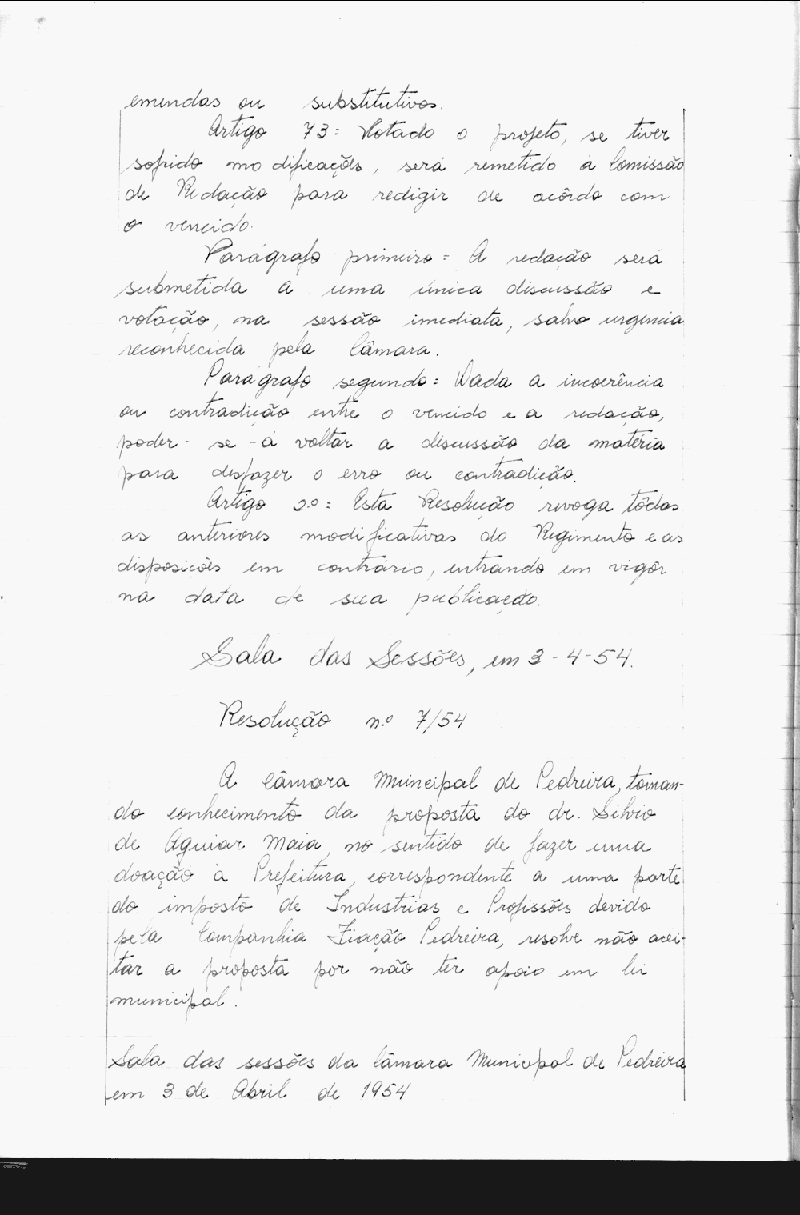 emendas ou substitutivos.
Artigo 73: Votado o projeto, se tiver
sofrido modificações, será remetido à Comissão
de Redação para redigir de acôrdo com
o vencido.
Parágrafo primeiro = A redação será
submetida a uma única discussão e
votação, na sessão imediata, salvo urgencia
reconhecida pela Câmara.
Parágrafo segundo: Dada a incoerência
ou contradição entre o vencido e a redação,
poder-se-á voltar a discussão da matéria
para desfazer o erro ou contradição.
Artigo 2º: Esta Resolução revoga tôdas
as anteriores modificativas do Regimento e as
disposicões em contrário, entrando em vigôr
na data de sua publicação.
Sala das Sessões, em 3-4-54.
Resolução n.º 7/54
A Câmara Municipal de Pedreira, toman-
do conhecimento da proposta do dr. Silvio
de Aguiar Maia, no sentido de fazer uma
doação à Prefeitura, correspondente a uma parte
do imposto de Industrias e Profissões devido
pela Companhia Fiação Pedreira, resolve não acei-
tar a proposta por não ter apoio em lei
municipal.
Sala das sessões da Câmara Municipal de Pedreira
em 3 de Abril de 1954